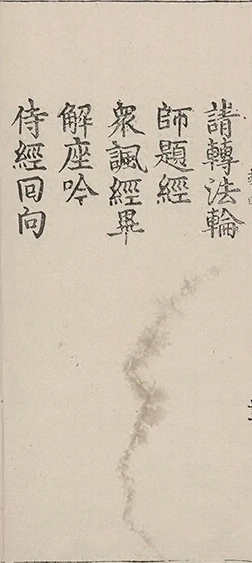 請轉法輪
師題經
衆諷經畢
解座吟
侍經回向